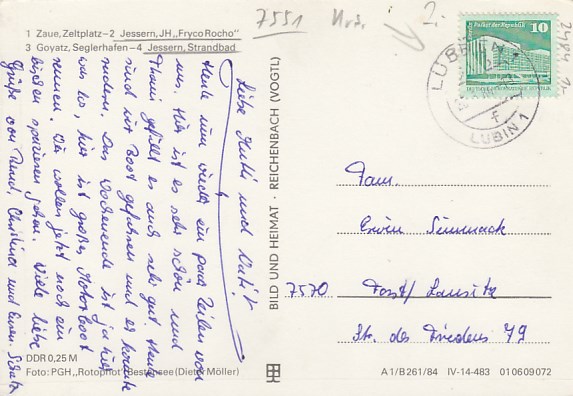 1 Zaue, Zeltplatz–2 Jessern, JH „Fryco Rocho"
3 Goyatz, Seglerhafen–4 Jessern, Strandbad
7551
2.
10
DEUTSCHE DEMOKRATISCHE REPUBLIK
LÜBBEN
f
LUBIN 1
Liebe Mutti und Vati!
Heute nun wieder ein paar Zeilen von
uns. Hier ist es sehr schön und
gefällt es auch sehr gut. Heute
sind wir Boot gefahren und es konnte
rudern. Das Wochenende ist ja hier
was los, hier ist großes Motorboot
rennen. Wir wollen jetzt noch ein
bißchen spazieren gehen. Viele liebe
Grüße von und Ewin.
BILD UND HEIMAT · REICHENBACH (VOGTL)
Fam.
Erwin
7570 Forst/Lausitz
Str. des Friedens 49
DDR 0,25 M
Foto: PGH „Rotophot" Bestensee (Dieter Möller)
A 1/B 261/84 IV-14-483 01 06 09 072